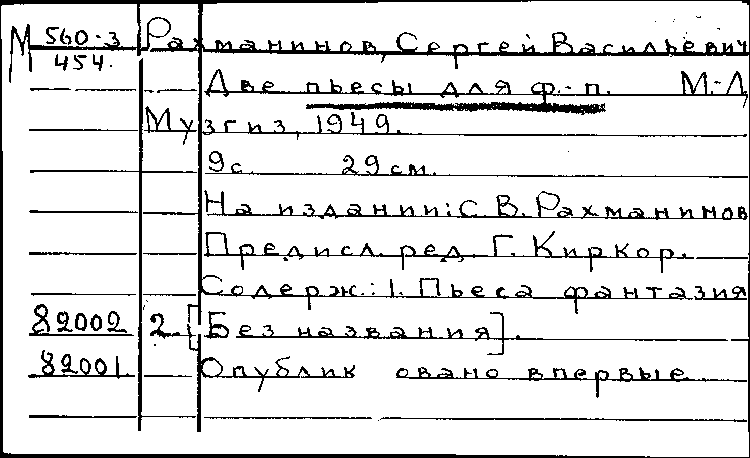 М 560-3 Рахманинов, Сергей Васильевич
454.
Две пьесы для ф.-п. М.-Л,
Музгиз, 1949.
9с. 29см.
На издании: С. В. Рахманинов
Предисл. ред. Г. Киркор.
Содерж.: 1. Пьеса фантазия
82002 2. [Без названия].
82001 Опублик овано впервые